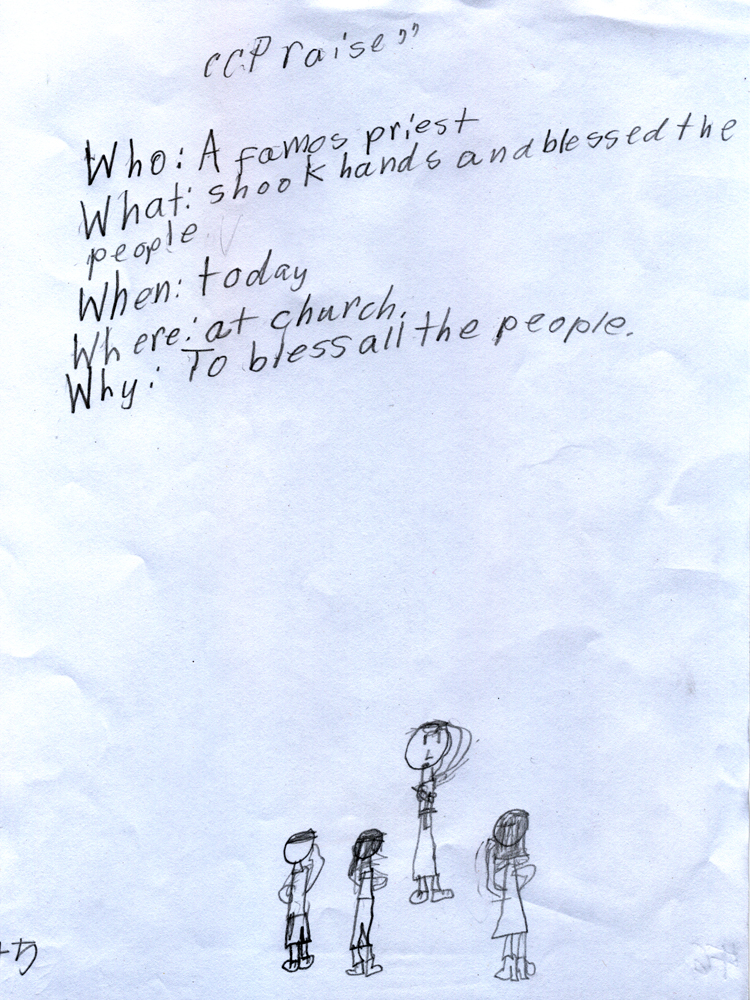 "Praise"
Who: A famos priest
What: shook hands and blessed the
people
When: today
Where: at church.
Why: To bless all the people.